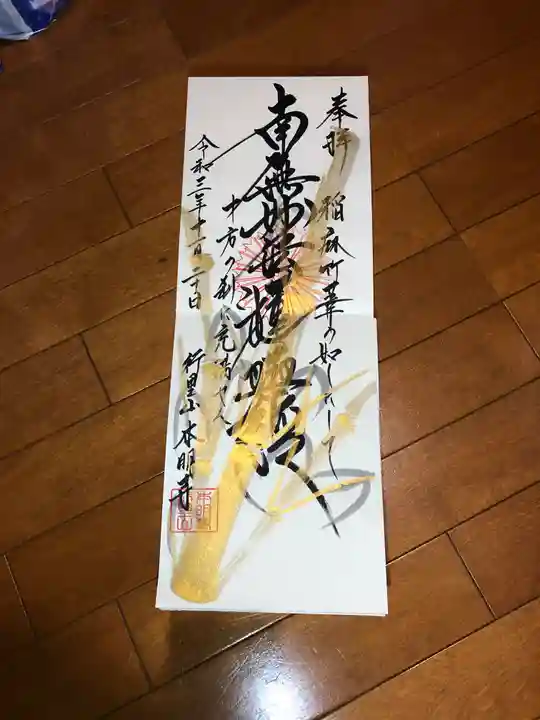 奉拝
稲麻竹葦の如くして
南無妙法蓮華経
十方の刹に充満せん
令和三年十一月二十日
行里山 本明寺